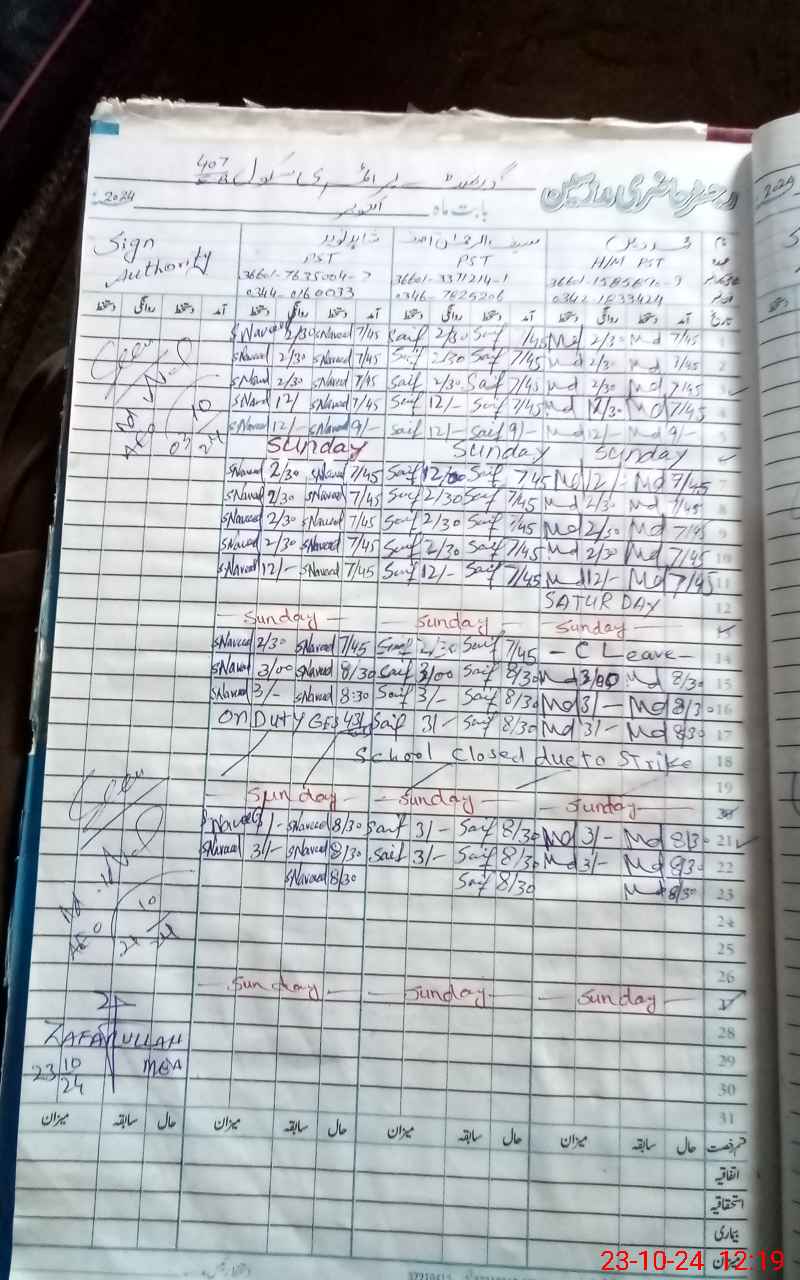 گورنمنٹ پرائمری سکول 407 EB
رجسٹر حاضری مدرسین
بابت ماہ اکتوبر 2024
Sign Authority
شاہد نوید
نام
PST PST H/M PST عہدہ
0344-0160033
تاریخ آمد دستخط روانگی دستخط آمد دستخط روانگی دستخط آمد دستخط روانگی دستخط آمد دستخط روانگی دستخط
SNaveed 2/30 SNaveed 7/45 Saif 2/30 Saif 7/45 Md 2/30 Md 7/45 1
SNaveed 2/30 SNaveed 7/45 Saif 2/30 Saif 7/45 Md 2/30 Md 7/45 2
SNaveed 2/30 SNaveed 7/45 Saif 2/30 Saif 7/45 Md 2/30 Md 7/45 3
SNaveed 12/- SNaveed 7/45 Saif 12/- Saif 7/45 Md 12/30 Md 7/45 4
SNaveed 12/- SNaveed 9/- Saif 12/- Saif 9/- Md 12/- Md 9/- 5
Sunday Sunday Sunday 6
SNaveed 2/30 SNaveed 7/45 Saif 12/00 Saif 7/45 Md 12/- Md 7/45 7
SNaveed 2/30 SNaveed 7/45 Saif 2/30 Saif 7/45 Md 2/30 Md 7/45 8
SNaveed 2/30 SNaveed 7/45 Saif 2/30 Saif 7/45 Md 2/30 Md 7/45 9
SNaveed 2/30 SNaveed 7/45 Saif 2/30 Saif 7/45 Md 2/30 Md 7/45 10
SNaveed 12/- SNaveed 7/45 Saif 12/- Saif 7/45 Md 12/- Md 7/45 11
SATURDAY 12
Sunday Sunday Sunday 13
SNaveed 2/30 SNaveed 7/45 Saif 2/30 Saif 7/45 - C Leave - 14
SNaveed 3/00 SNaveed 8/30 Saif 3/00 Saif 8/30 Md 3/00 Md 8/30 15
SNaveed 3/- SNaveed 8:30 Saif 3/- Saif 8/30 Md 3/- Md 8/30 16
On DUTY GES 431 Saif 3/- Saif 8/30 Md 3/- Md 8/30 17
School Closed due to Strike 18
19
Sunday Sunday Sunday 20
SNaveed 3/- SNaveed 8/30 Saif 3/- Saif 8/30 Md 3/- Md 8/30 21
SNaveed 3/- SNaveed 8/30 Saif 3/- Saif 8/30 Md 3/- Md 8/30 22
SNaveed 8/30 Saif 8/30 Md 8/30 23
24
25
26
Sunday Sunday Sunday 27
28
29
30
31
AEO
AEO
ZAFARULLAH
MEA
23 10 24
قسم رخصت حال سابقہ میزان حال سابقہ میزان حال سابقہ میزان حال سابقہ میزان
اتفاقیہ
استحقاقیہ
بیماری
میزان
23-10-24 12:19